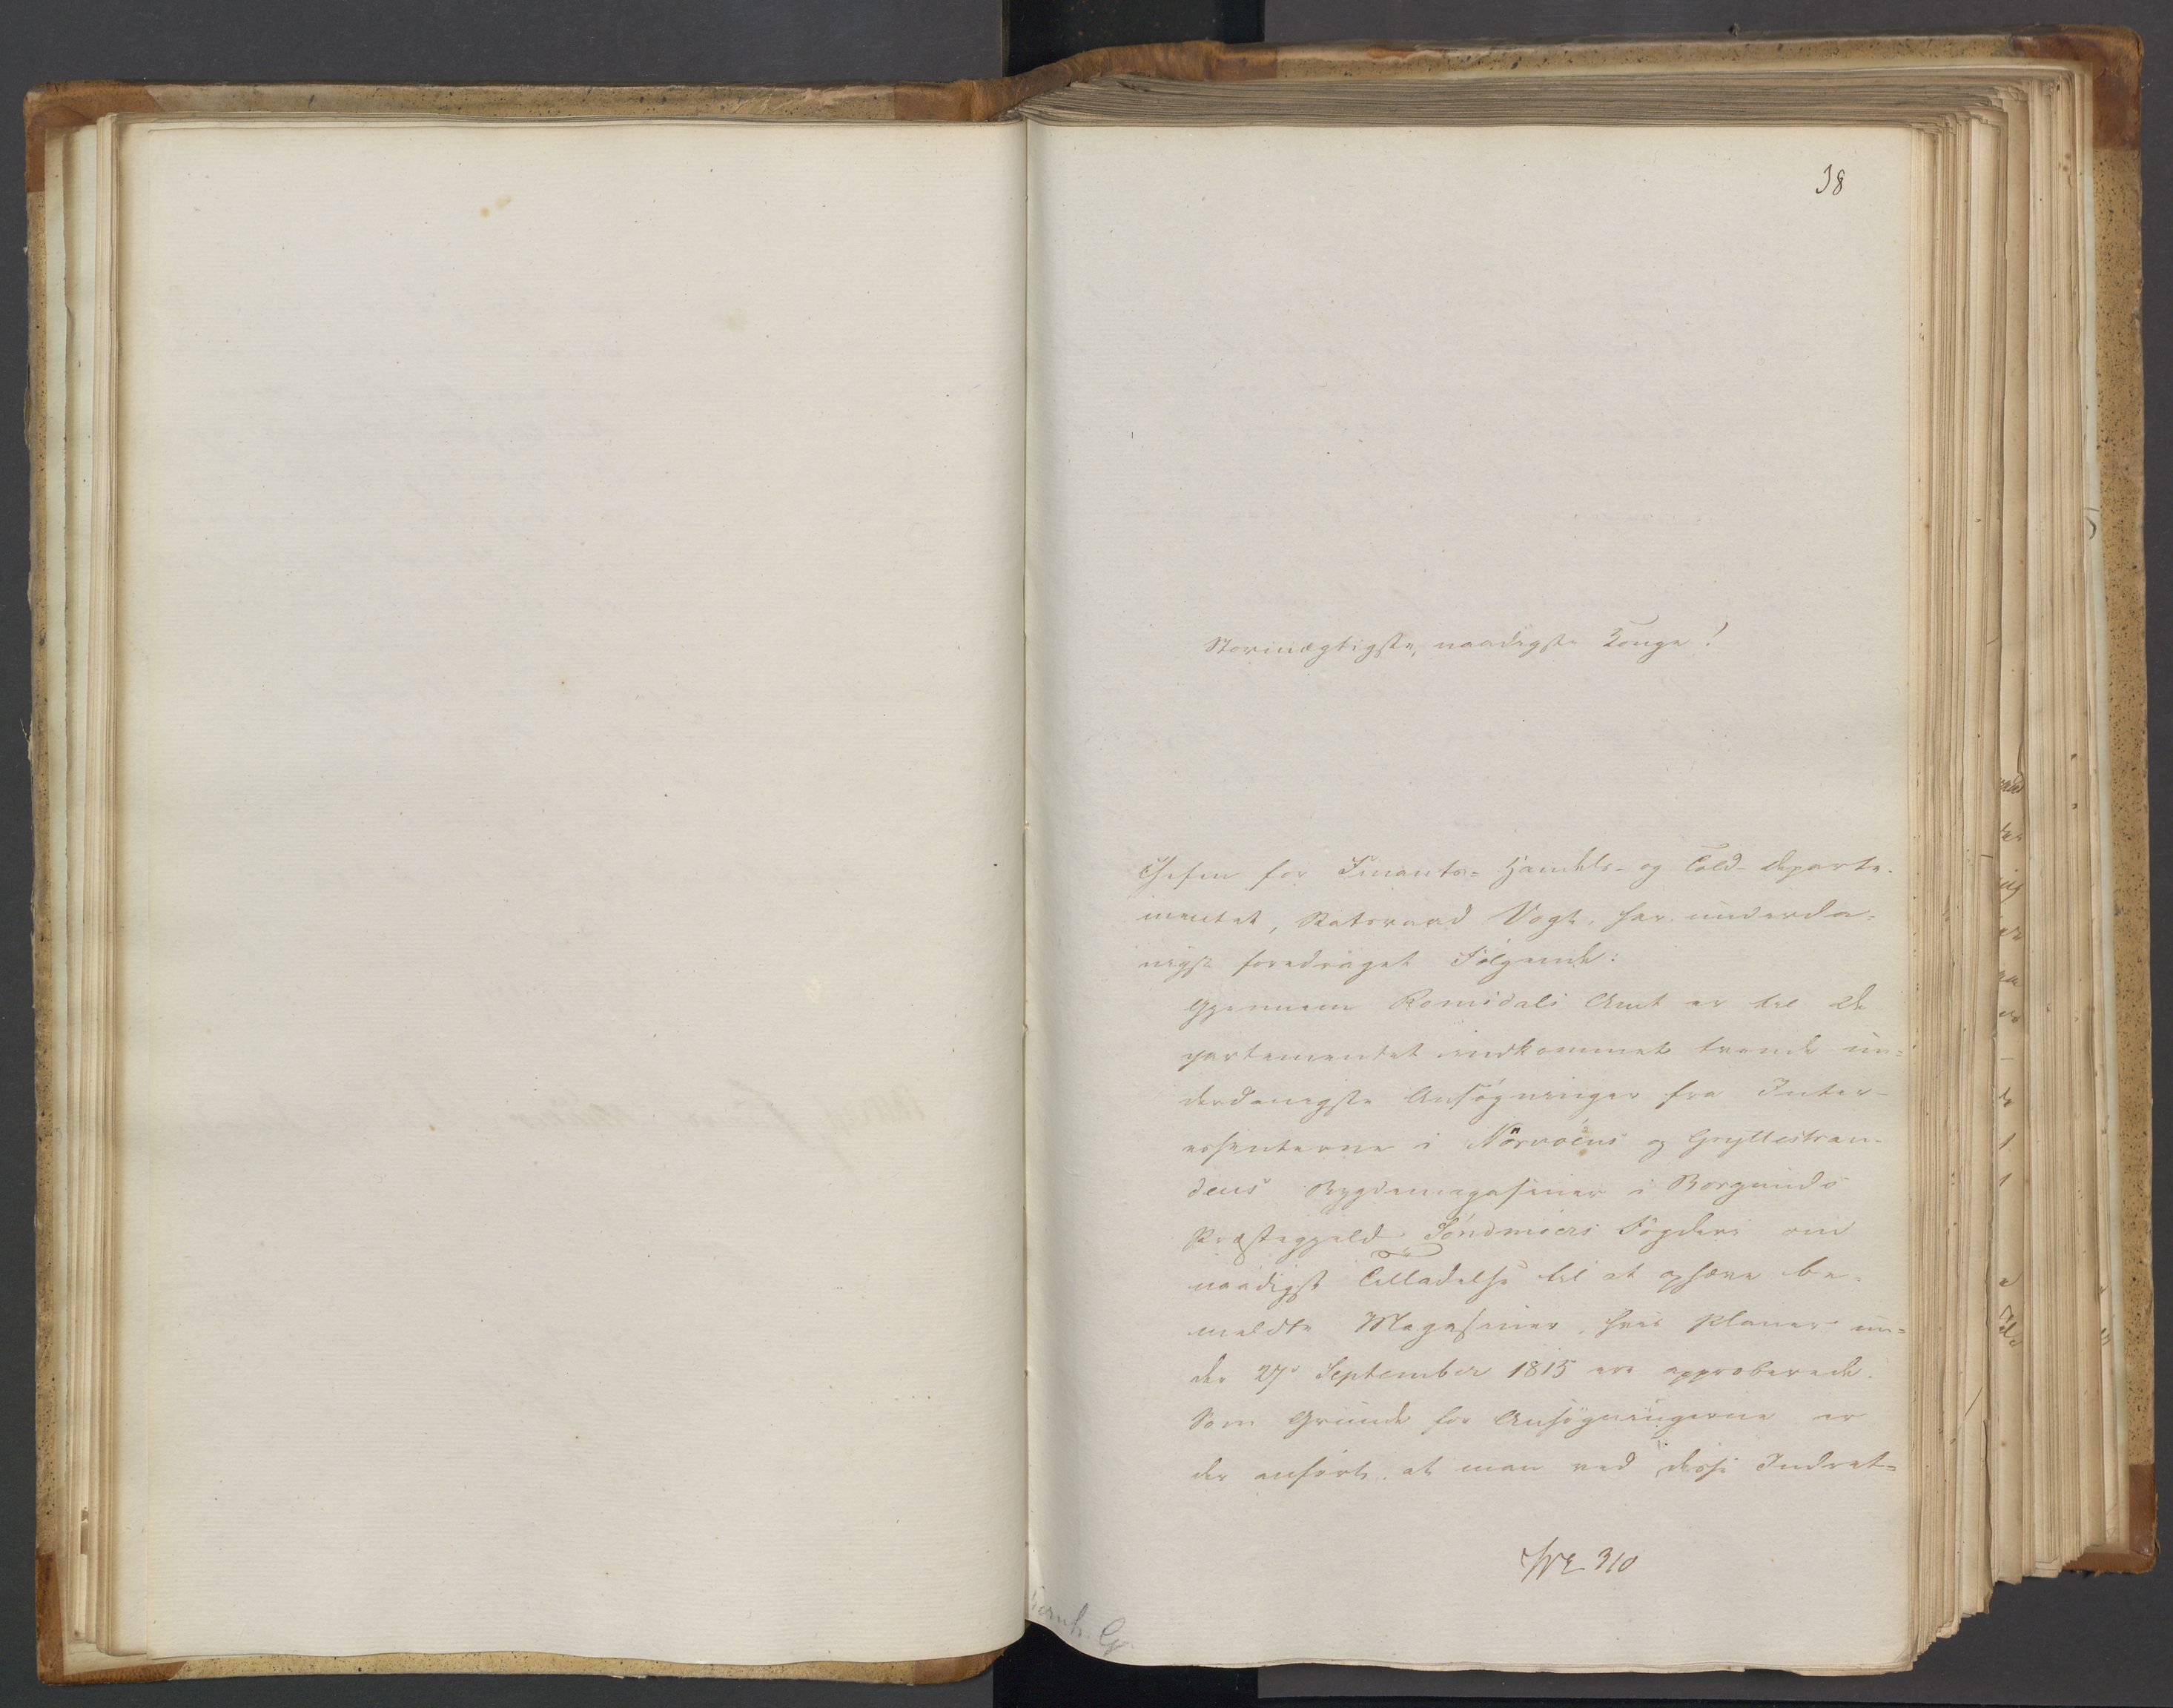 38
Stormægtigste, naadigste Konge!
Chefen for Finants- Handels- og Told-Departe-
mentet, Statsraad Vogt, har underda-
nigst foredraget Følgende:
Gjennem Romsdals Amt er til De
partementet indkommet tvende un-
derdanigste Ansøgninger fra Inter-
essenterne i Nørvøens og Gryllestran-
dens Bygdemagasiner i Borgunds
Præstegjeld Søndmøers Fogderi om
naadigst Tilladelse til at ophæve be-
meldte Magasiner, hvis Planer un-
der 27de September 1815 ere approberede.
Som Grunde for Ansøgningerne er
der anført, at man ved disse Indret-
No 310